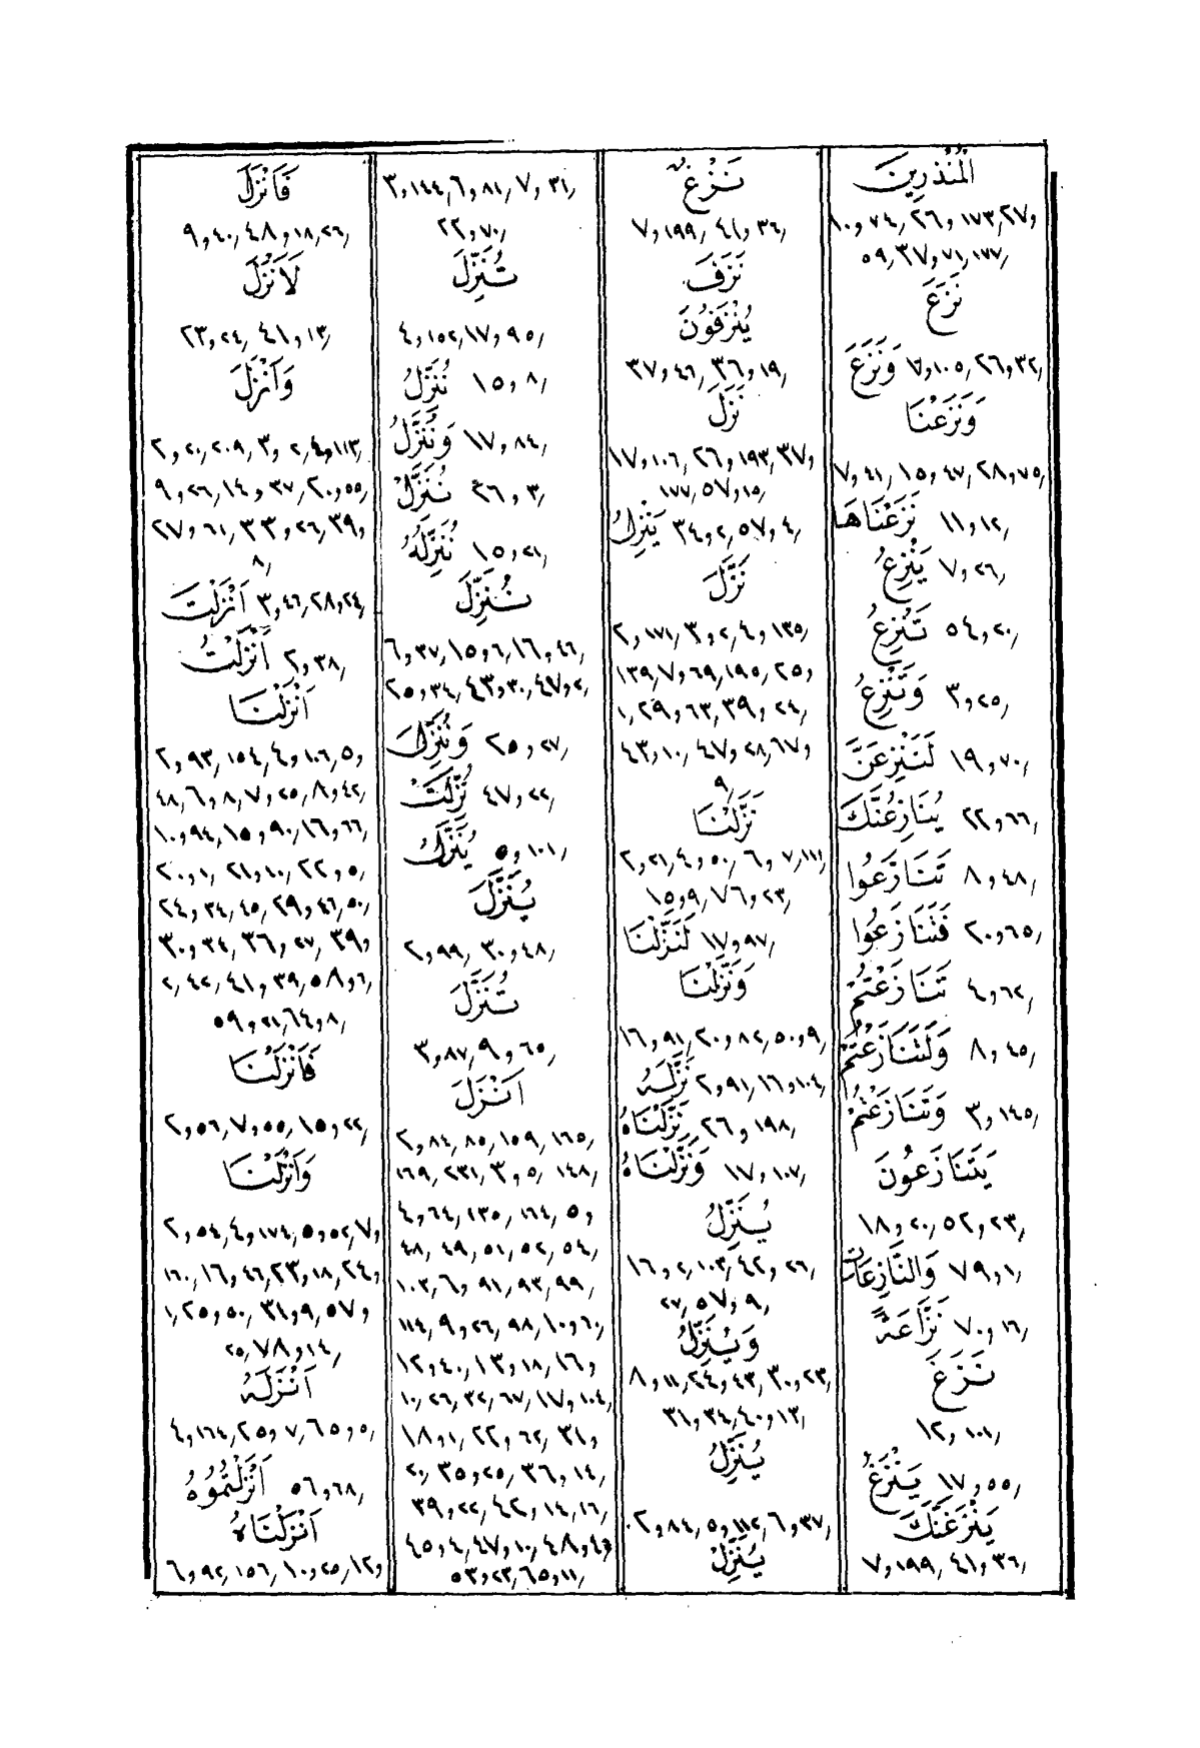 الْمُنْذَرِينَ
١٠,٧٤, ٢٦, ١٧٣,٢٧,
٥٩, ٣٧,٧١,١٧٧,
نَزَعَ
وَنَزَعَ ٧,١٠٥, ٢٦,٣٢,
وَنَزَعْنَا
٧,٤١, ١٥,٤٧, ٢٨,٧٥,
نَزَعْنَاهَا ١١,١٢,
يَنْزِعُ ٧,٢٦,
تَنْزِعُ ٥٤,٢٠,
وَتَنْزِعُ ٣,٢٥,
لَنَنْزِعَنَّ ١٩,٧٠,
يُنَازِعُنَّكَ ٢٢,٦٦,
تَنَازَعُوا ٨,٤٨,
فَتَنَازَعُوا ٢٠,٦٥,
تَنَازَعْتُمْ ٤,٦٢,
وَلَتَنَازَعْتُمْ ٨,٤٥,
وَتَنَازَعْتُمْ ٣,١٤٥,
يَتَنَازَعُونَ
١٨,٢٠, ٥٢,٢٣,
وَالنَّازِعَاتِ ٧٩,١,
نَزَّاعَةً ٧٠,١٦,
نَزَغَ
١٢,١٠١,
يَنْزَغُ ١٧,٥٥,
يَنْزَغَنَّكَ
٧,١٩٩, ٤١,٣٦,
نَزْغٌ
٧,١٩٩, ٤١,٣٦,
نَزَفَ
يُنْزَفُونَ
٣٧,٤٦, ٣٦,١٩,
نَزَلَ
١٧,١٠٦, ٢٦,١٩٣,٣٧,
١٧٧,٥٧,١٥,
يَنْزِلُ ٣٤,٢,٥٧,٤,
نَزَّلَ
٢,١٧١, ٣,٢, ٤,١٣٥,
١٣٩,٧,٦٩,١٩٥,٢٥,
١,٢٩,٦٣,٣٩,٢٤,
٤٣,١٠, ٤٧,٢٨,٦٧,
٩,
نَزَّلْنَا
٢,٢١,٤,٥٠, ٦,٧,١١١,
١٥,٩,٧٦,٢٣,
لَنَزَّلْنَا ١٧,٩٧,
وَنَزَّلْنَا
١٦,٩١,٢٠,٨٢,٥٠,٩,
نَزَّلَهُ ٢,٩١,١٦,١٠٤,
نَزَّلْنَاهُ ٢٦,١٩٨,
وَنَزَّلْنَاهُ ١٧,١٠٧,
يُنَزِّلُ
١٦,٢,١٠٣, ٤٢,٢٦,
٢٧,٥٧,٩,
وَيُنَزِّلُ
٨,١١, ٢٤,٤٣, ٣٠,٢٣,
٣١,٣٤,٤٠,١٣,
يُنَزِّلُ
٢,٨٤,٥,١١٢,٦,٣٧,
يُنَزِّلْ
٣,١٤٤,٦,٨١,٧,٣٤,
٢٢,٧٠,
تُنَزِّلَ
٤,١٥٢,١٧,٩٥,
نُنَزِّلُ ١٥,٨,
وَنُنَزِّلُ ١٧,٨٤,
نُنَزِّلْ ٢٦,٣,
نُنَزِّلُهُ ١٥,٢١,
نُنَزِّلَ
٦,٣٧,١٥,٦,١٦,٤٦,
٢٥,٣٤, ٤٣,٣٠,٤٧,٢,
وَنُزِّلَ ٢٥,٢٧,
نُزِّلَتْ ٤٧,٢٢,
يُنَزَّلُ ٥,١٠١,
يُنَزَّلَ
٢,٩٩, ٣٠,٤٨,
تُنَزَّلَ
٣,٨٧,٩,٦٥,
اَنْزَلَ
٢,٨٤, ٨٥, ١٥٩, ١٦٥,
١٦٩, ٢٣١, ٣,٥, ١٤٨,
٤,٦٤, ١٣٥, ١٦٤, ٥,
٤٨, ٤٩,٥١,٥٢, ٥٤,
١٠٣,٦, ٩١, ٩٣, ٩٩,
١١٤,٩,٢٦,٩٨,١٠,٦٠,
١٢,٤٠,١٣,١٨,١٦,
١٠,٢٦,٣٢,٦٧,١٧,١٠٤,
١٨,١, ٢٢,٦٢, ٣١,
٢٠, ٣٥,٢٥, ٣٦,١٤,
٣٩,٢٢, ٤٢,١٤,١٦,
٤٥,٤,٤٧,١٠,٤٨,٤,
٥٣,٢٣,٦٥,١١,
فَاَنْزَلَ
٩,٤٠, ٤٨,١٨,٢٦,
لَاَنْزَلَ
٢٣,٢٤, ٤١,١٣,
وَاَنْزَلَ
٢,٢٠,٢٠٩, ٣, ٢,٤,١١٣,
٩,٢٦, ١٤,٣٧,٢٠,٥٥,
٢٧,٦١,٣٣,٢٦,٣٩,
٨,
اَنْزَلْتَ ٣,٤٦,٢٨,٢٤,
اَنْزَلْتُ ٢,٣٨,
اَنْزَلْنَا
٢,٩٣, ١٥٤, ٤,١٠٦,٥,
٤٨,٦,٨,٧,٢٥,٨,٤٢,
١٠,٩٤,١٥,٩٠,١٦,٦٦,
٢٠,١, ٢١,١٠, ٢٢,٥,
٢٤,٣٤,٤٥,٢٩,٤٦,٥٠,
٣٠,٣٤,٣٦,٢٧, ٣٩,
٢,٤٢,٤١,٣٩,٥٨,٦,
٥٩,٢١,٦٤,٨,
فَاَنْزَلْنَا
٢,٥٦,٧,٥٥,١٥,٢٢,
وَاَنْزَلْنَا
٢,٥٤,٤,١٧٤,٥,٥٢,٧,
١٦٠,١٦,٤٦,٢٣,١٨,٢٤,
١,٢٥,٥٠,٣١,٩,٥٧,
٢٥,٧٨,١٤,
اَنْزَلَهُ
٤,١٦٤,٢٥,٧,٦٥,٥,
اَنْزَلْتُمُوهُ ٥٦,٦٨,
اَنْزَلْنَاهُ
٦,٩٢,١٥٦,١٠,٢٥,١٢,